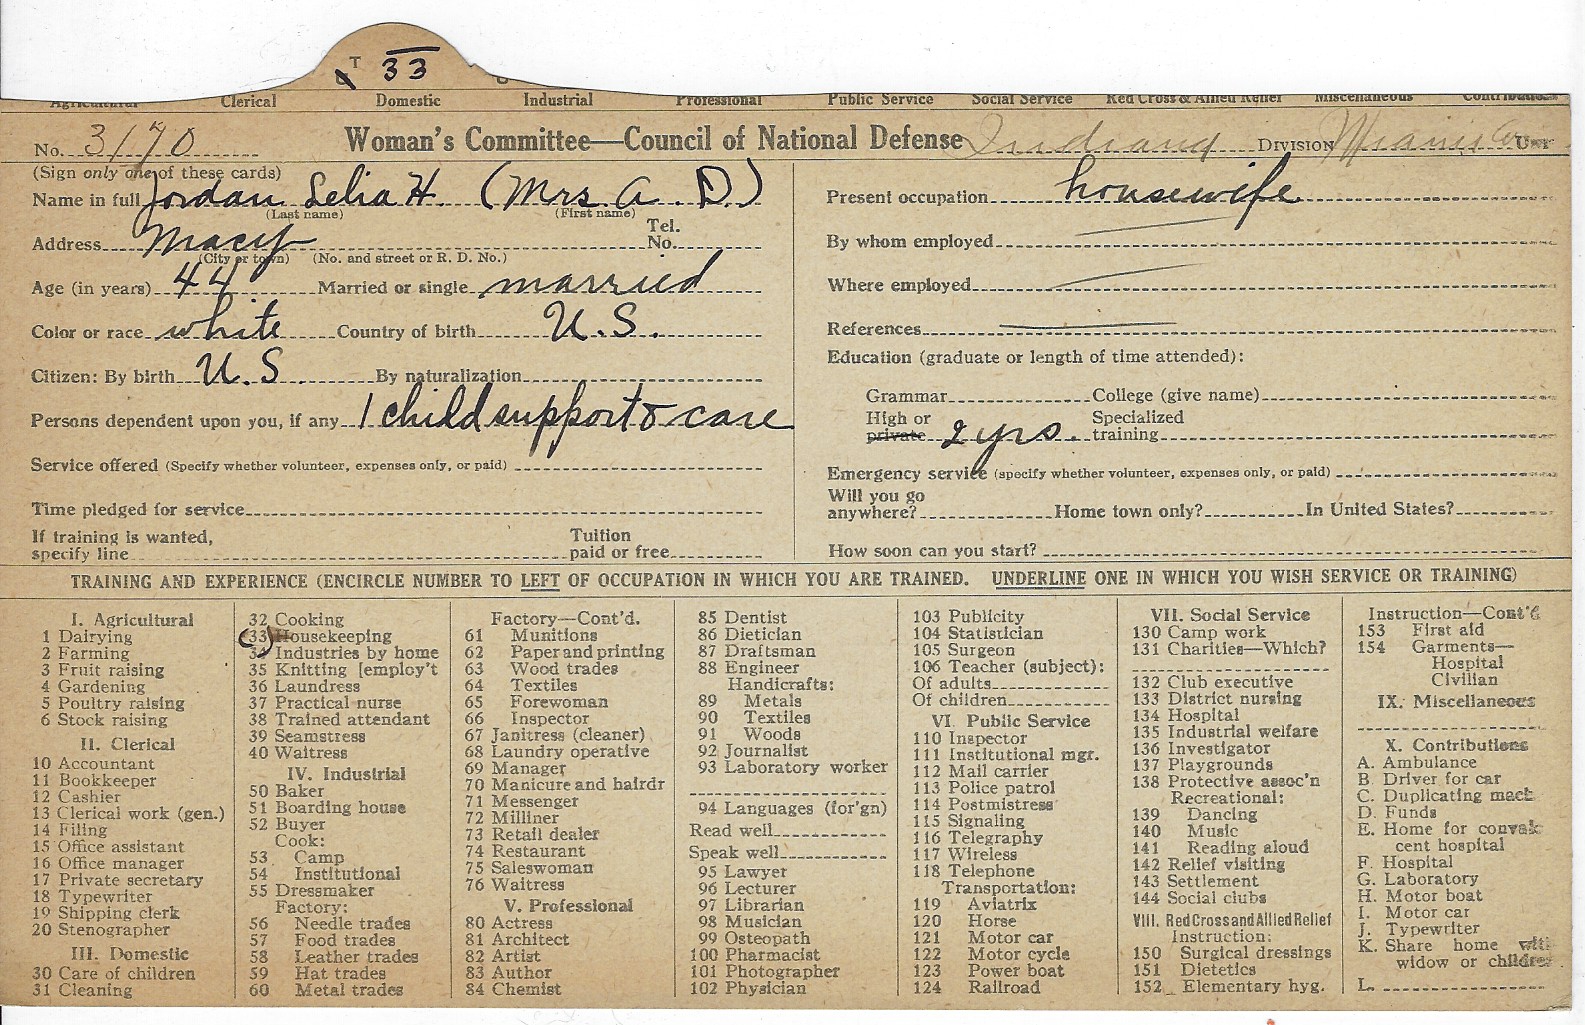 T 33
Agricultural Clerical Domestic Industrial Professional Public Service Social Service Red Cross & Allied Relief Miscellaneous Contributions
No. 3170 Woman's Committee—Council of National Defense Indiana Division Miami Co
(Sign only one of these cards)
Name in full Jordan Lelia H. (Mrs. A. D.)
(Last name) (First name)
Address Macy Tel. No.
(City or town) (No. and street or R. D. No.)
Age (in years) 44 Married or single married
Color or race white Country of birth U.S.
Citizen: By birth U.S. By naturalization
Persons dependent upon you, if any 1 child support & care
Service offered (Specify whether volunteer, expenses only, or paid)
Time pledged for service
If training is wanted, specify line Tuition paid or free
Present occupation housewife
By whom employed
Where employed
References
Education (graduate or length of time attended):
Grammar College (give name)
High or private 2 yrs. Specialized training
Emergency service (specify whether volunteer, expenses only, or paid)
Will you go anywhere? Home town only? In United States?
How soon can you start?
TRAINING AND EXPERIENCE (ENCIRCLE NUMBER TO LEFT OF OCCUPATION IN WHICH YOU ARE TRAINED. UNDERLINE ONE IN WHICH YOU WISH SERVICE OR TRAINING)
I. Agricultural
1 Dairying
2 Farming
3 Fruit raising
4 Gardening
5 Poultry raising
6 Stock raising
II. Clerical
10 Accountant
11 Bookkeeper
12 Cashier
13 Clerical work (gen.)
14 Filing
15 Office assistant
16 Office manager
17 Private secretary
18 Typewriter
19 Shipping clerk
20 Stenographer
III. Domestic
30 Care of children
31 Cleaning
32 Cooking
33 Housekeeping
34 Industries by home
35 Knitting [employ't
36 Laundress
37 Practical nurse
38 Trained attendant
39 Seamstress
40 Waitress
IV. Industrial
50 Baker
51 Boarding house
52 Buyer
Cook:
53 Camp
54 Institutional
55 Dressmaker
Factory:
56 Needle trades
57 Food trades
58 Leather trades
59 Hat trades
60 Metal trades
Factory—Cont'd.
61 Munitions
62 Paper and printing
63 Wood trades
64 Textiles
65 Forewoman
66 Inspector
67 Janitress (cleaner)
68 Laundry operative
69 Manager
70 Manicure and hairdr
71 Messenger
72 Milliner
73 Retail dealer
74 Restaurant
75 Saleswoman
76 Waitress
V. Professional
80 Actress
81 Architect
82 Artist
83 Author
84 Chemist
85 Dentist
86 Dietician
87 Draftsman
88 Engineer
Handicrafts:
89 Metals
90 Textiles
91 Woods
92 Journalist
93 Laboratory worker
94 Languages (for'gn)
Read well
Speak well
95 Lawyer
96 Lecturer
97 Librarian
98 Musician
99 Osteopath
100 Pharmacist
101 Photographer
102 Physician
103 Publicity
104 Statistician
105 Surgeon
106 Teacher (subject):
Of adults
Of children
VI. Public Service
110 Inspector
111 Institutional mgr.
112 Mail carrier
113 Police patrol
114 Postmistress
115 Signaling
116 Telegraphy
117 Wireless
118 Telephone
Transportation:
119 Aviatrix
120 Horse
121 Motor car
122 Motor cycle
123 Power boat
124 Railroad
VII. Social Service
130 Camp work
131 Charities—Which?
132 Club executive
133 District nursing
134 Hospital
135 Industrial welfare
136 Investigator
137 Playgrounds
138 Protective assoc'n
Recreational:
139 Dancing
140 Music
141 Reading aloud
142 Relief visiting
143 Settlement
144 Social clubs
VIII. Red Cross and Allied Relief
Instruction:
150 Surgical dressings
151 Dietetics
152 Elementary hyg.
Instruction—Cont'd
153 First aid
154 Garments—
Hospital
Civilian
IX. Miscellaneous
X. Contributions
A. Ambulance
B. Driver for car
C. Duplicating mach
D. Funds
E. Home for conval
cent hospital
F. Hospital
G. Laboratory
H. Motor boat
I. Motor car
J. Typewriter
K. Share home with
widow or children
L.